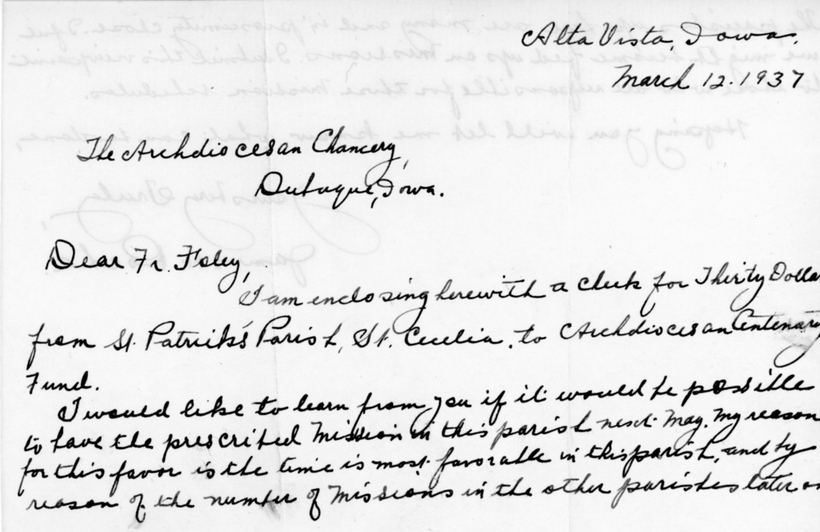 Alta Vista, Iowa.
March 12. 1937
The Archdiocesan Chancery,
Dubuque, Iowa.
Dear Fr. Foley,
I am enclosing herewith a check for Thirty Dolla
from St. Patrick's Parish, St. Cecelia, to Archdiocesan Centenary
Fund.
I would like to learn from you if it would be possible
to have the prescribed Mission in this parish next May. My reason
for this favor is the time is most favorable in this parish, and by
reason of the number of Missions in the other parishes later on